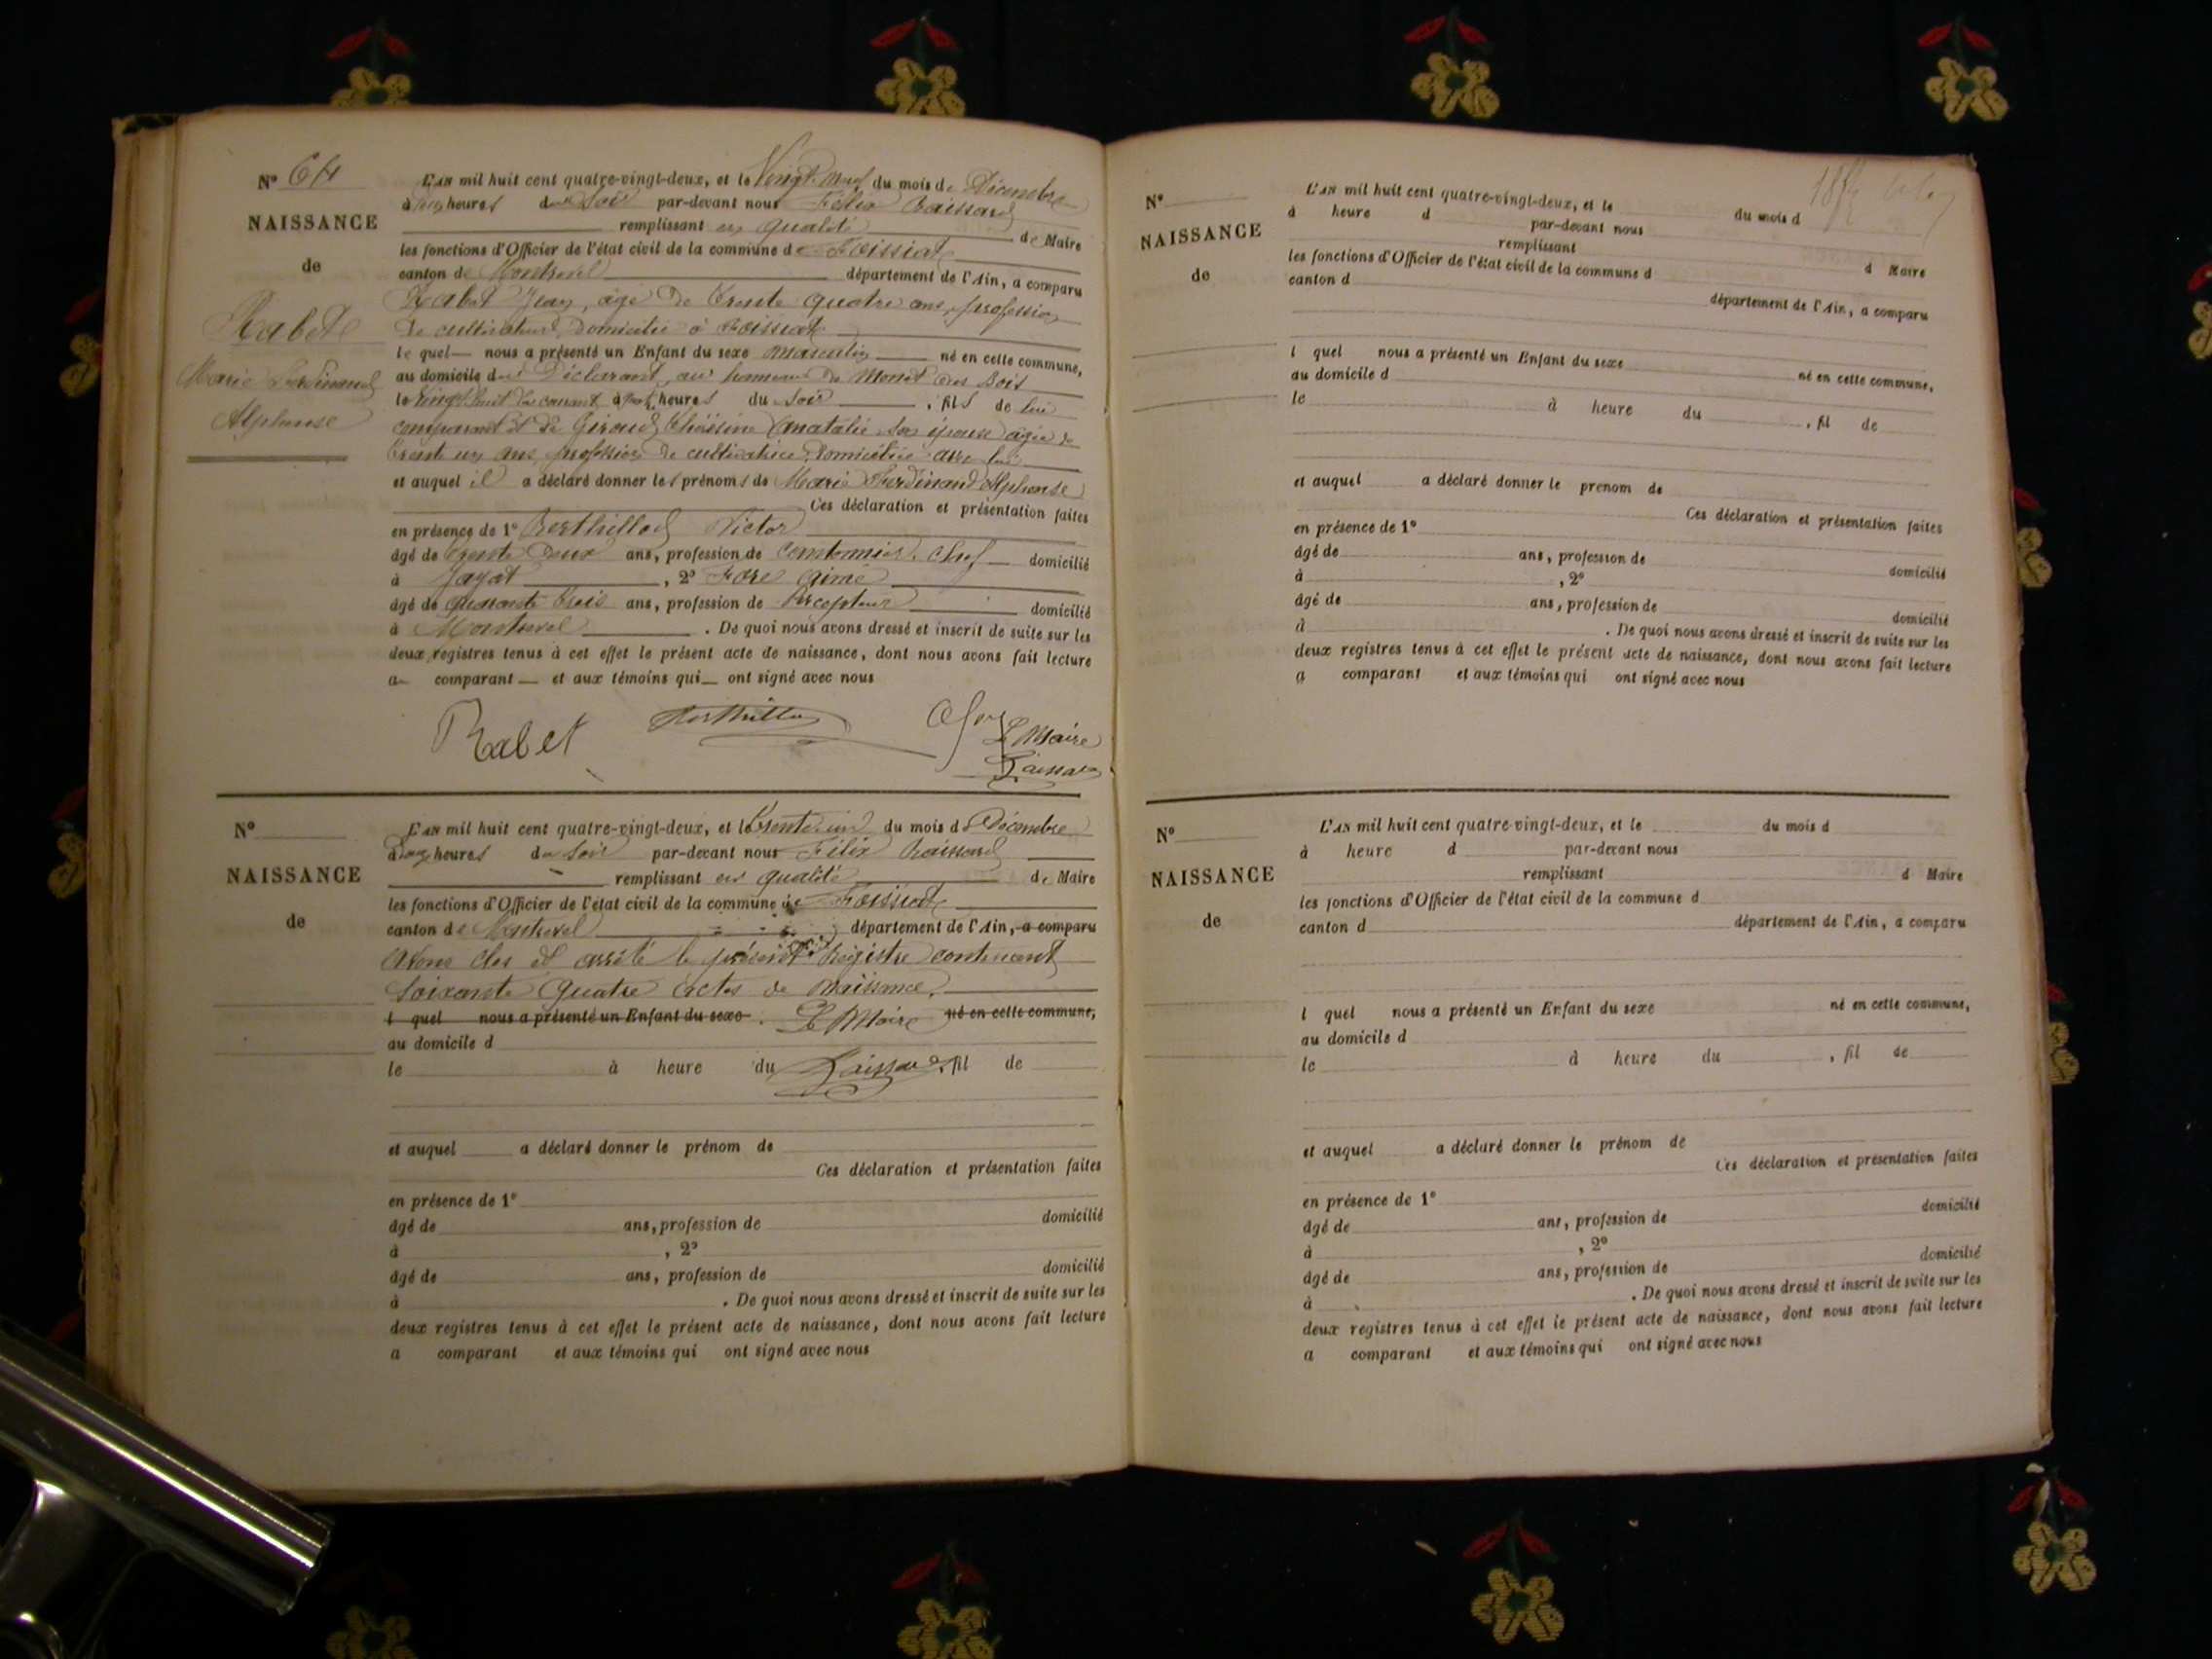 N° 64
NAISSANCE
de
Rabet
Marie Ferdinand
Alphonse
L'AN mil huit cent quatre-vingt-deux, et le Vingt Neuf du mois de Décembre
à heures du Soir par-devant nous Félix Raissard
remplissant en qualité de Maire
les fonctions d'Officier de l'état civil de la commune de Foissiat
canton de Montrevel département de l'Ain, a comparu
Rabet Jean, âgé de trente quatre ans, profession
de cultivateur, domicilié à Foissiat
le quel nous a présenté un Enfant du sexe masculin né en cette commune,
au domicile du Déclarant, au hameau de Monet des Bois
le vingt huit du courant à heures du Soir, fils de lui
comparant et de Giroud Anatalie son épouse âgée de
trente un ans profession de cultivatrice, domiciliée avec lui
et auquel il a déclaré donner les prénoms de Marie Ferdinand Alphonse
Ces déclaration et présentation faites
en présence de 1° Berthillod Victor
âgé de trente deux ans, profession de cantonnier chef domicilié
à Jayat, 2° Fore Aimé
âgé de quarante trois ans, profession de Percepteur domicilié
à Montrevel. De quoi nous avons dressé et inscrit de suite sur les
deux registres tenus à cet effet le présent acte de naissance, dont nous avons fait lecture
au comparant et aux témoins qui ont signé avec nous
Rabet
Le Maire
Raissard
N°
NAISSANCE
de
L'AN mil huit cent quatre-vingt-deux, et le trente un du mois de Décembre
à heures du Soir par-devant nous Félix Raissard
remplissant en qualité de Maire
les fonctions d'Officier de l'état civil de la commune de Foissiat
canton de Montrevel département de l'Ain, a comparu
Avons clos et arrêté le présent Registre contenant
Soixante Quatre Actes de Naissance.
l quel nous a présenté un Enfant du sexe. Le Maire né en cette commune,
au domicile d
le à heure du Raissard, fil de
et auquel a déclaré donner le prénom de
Ces déclaration et présentation faites
en présence de 1°
âgé de ans, profession de domicilié
à , 2°
âgé de ans, profession de domicilié
à . De quoi nous avons dressé et inscrit de suite sur les
deux registres tenus à cet effet le présent acte de naissance, dont nous avons fait lecture
a comparant et aux témoins qui ont signé avec nous
N°
NAISSANCE
de
L'AN mil huit cent quatre-vingt-deux, et le du mois d
à heure d par-devant nous
remplissant d Maire
les fonctions d'Officier de l'état civil de la commune d
canton d département de l'Ain, a comparu
l quel nous a présenté un Enfant du sexe né en cette commune,
au domicile d
le à heure du , fil de
et auquel a déclaré donner le prenom de
Ces déclaration et présentation faites
en présence de 1°
âgé de ans, profession de domicilié
à , 2°
âgé de ans, profession de domicilié
à . De quoi nous avons dressé et inscrit de suite sur les
deux registres tenus à cet effet le présent acte de naissance, dont nous avons fait lecture
a comparant et aux témoins qui ont signé avec nous
N°
NAISSANCE
de
L'AN mil huit cent quatre-vingt-deux, et le du mois d
à heure d par-devant nous
remplissant d Maire
les fonctions d'Officier de l'état civil de la commune d
canton d département de l'Ain, a comparu
l quel nous a présenté un Enfant du sexe né en cette commune,
au domicile d
le à heure du , fil de
et auquel a déclaré donner le prénom de
Ces déclaration et présentation faites
en présence de 1°
âgé de ans, profession de domicilié
à , 2°
âgé de ans, profession de domicilié
à . De quoi nous avons dressé et inscrit de suite sur les
deux registres tenus à cet effet le présent acte de naissance, dont nous avons fait lecture
a comparant et aux témoins qui ont signé avec nous